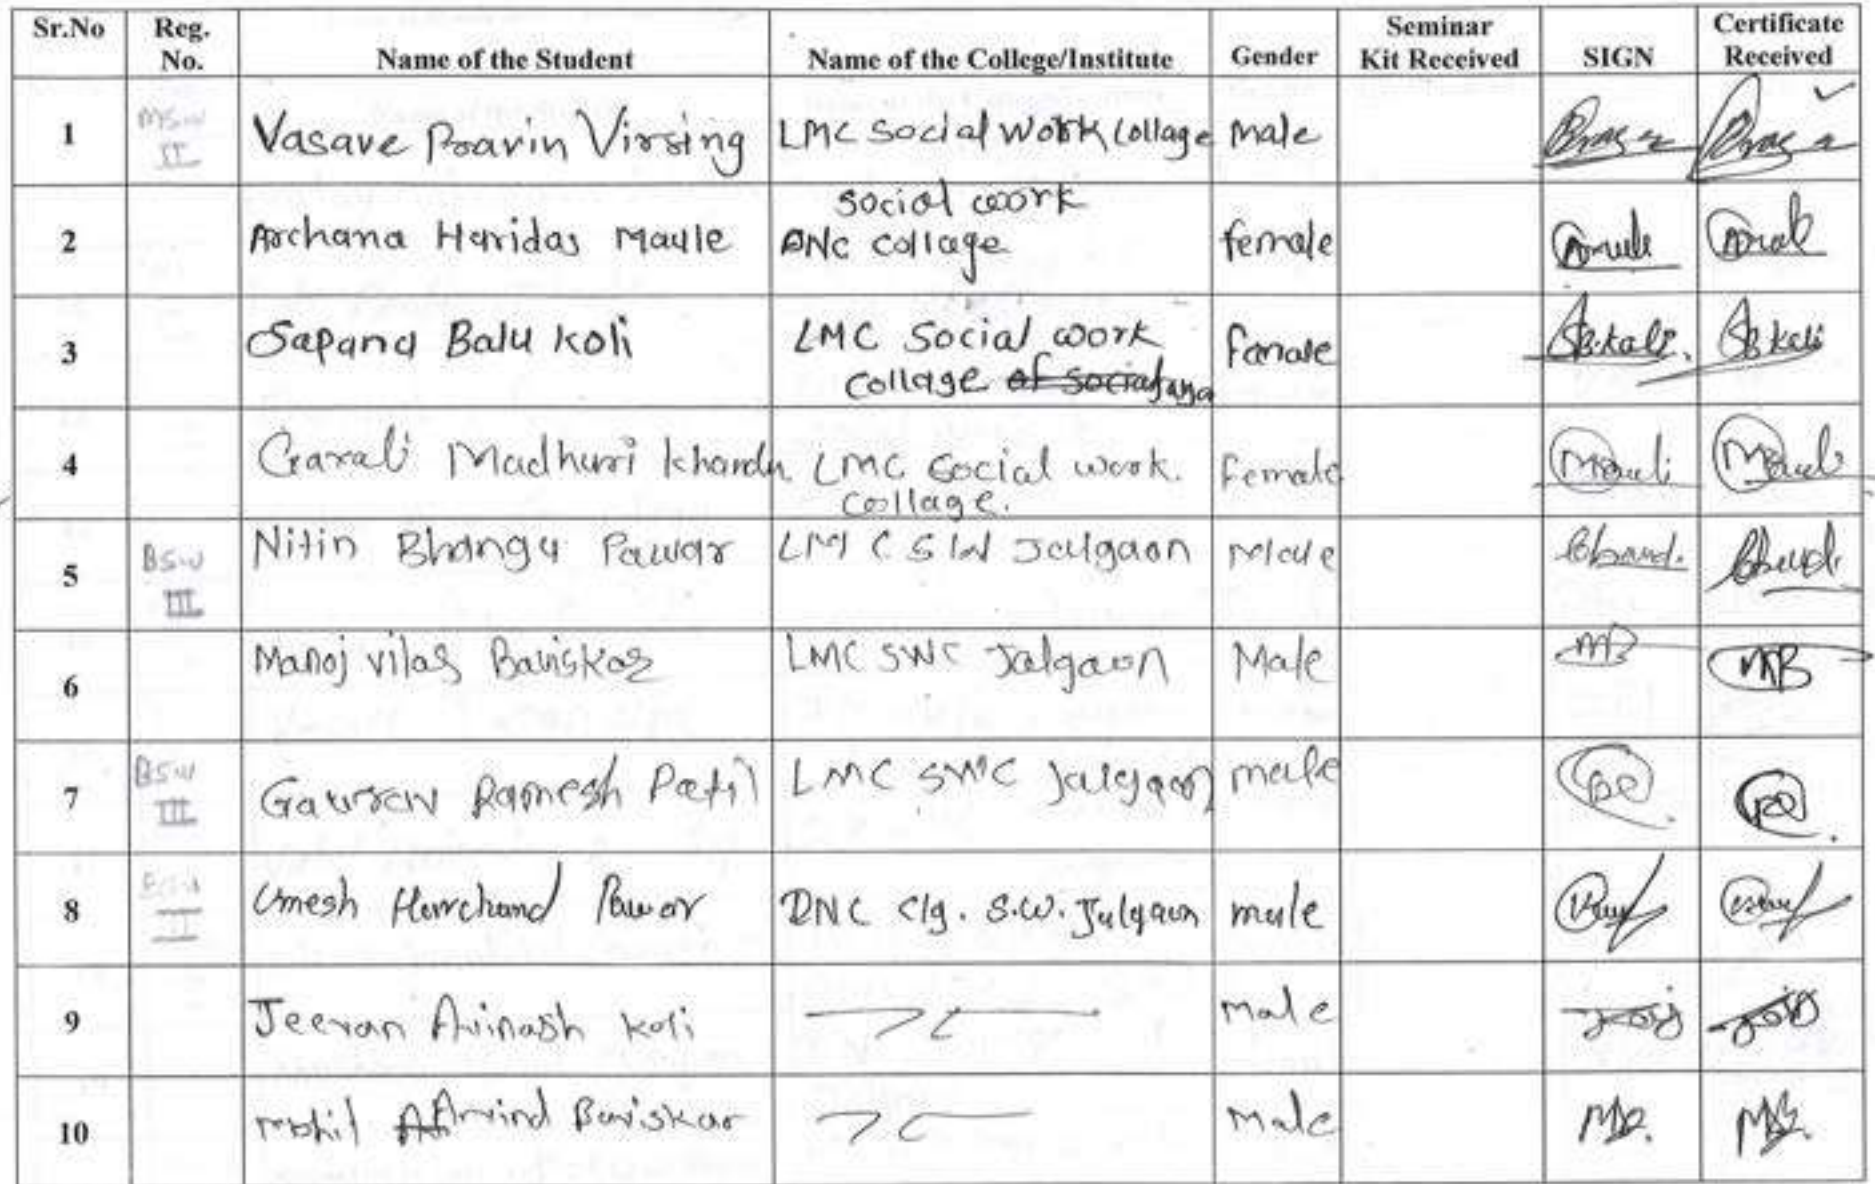 Sr.No Reg. No. Name of the Student Name of the College/Institute Gender Seminar Kit Received SIGN Certificate Received
1 MSW II Vasave Pravin Virsing LMC Social Work Collage male
2 Archana Haridas Maule social work DNC collage female
3 Sapana Balu Koli LMC Social work collage female
4 Gavali Madhuri Khandu LMC Social work. collage. Female
5 BSW III Nitin Bhangu Pawar LMC SW Jalgaon Male
6 Manoj vilas Baviskar LMC SWC Jalgaon Male
7 BSW III Gaurav Ramesh Patil LMC SWC Jalgaon male
8 II Umesh Harchand Pawar DNC clg. S.W. Jalgaon male
9 Jeevan Avinash Koli Male
10 Arvind Baviskar Male